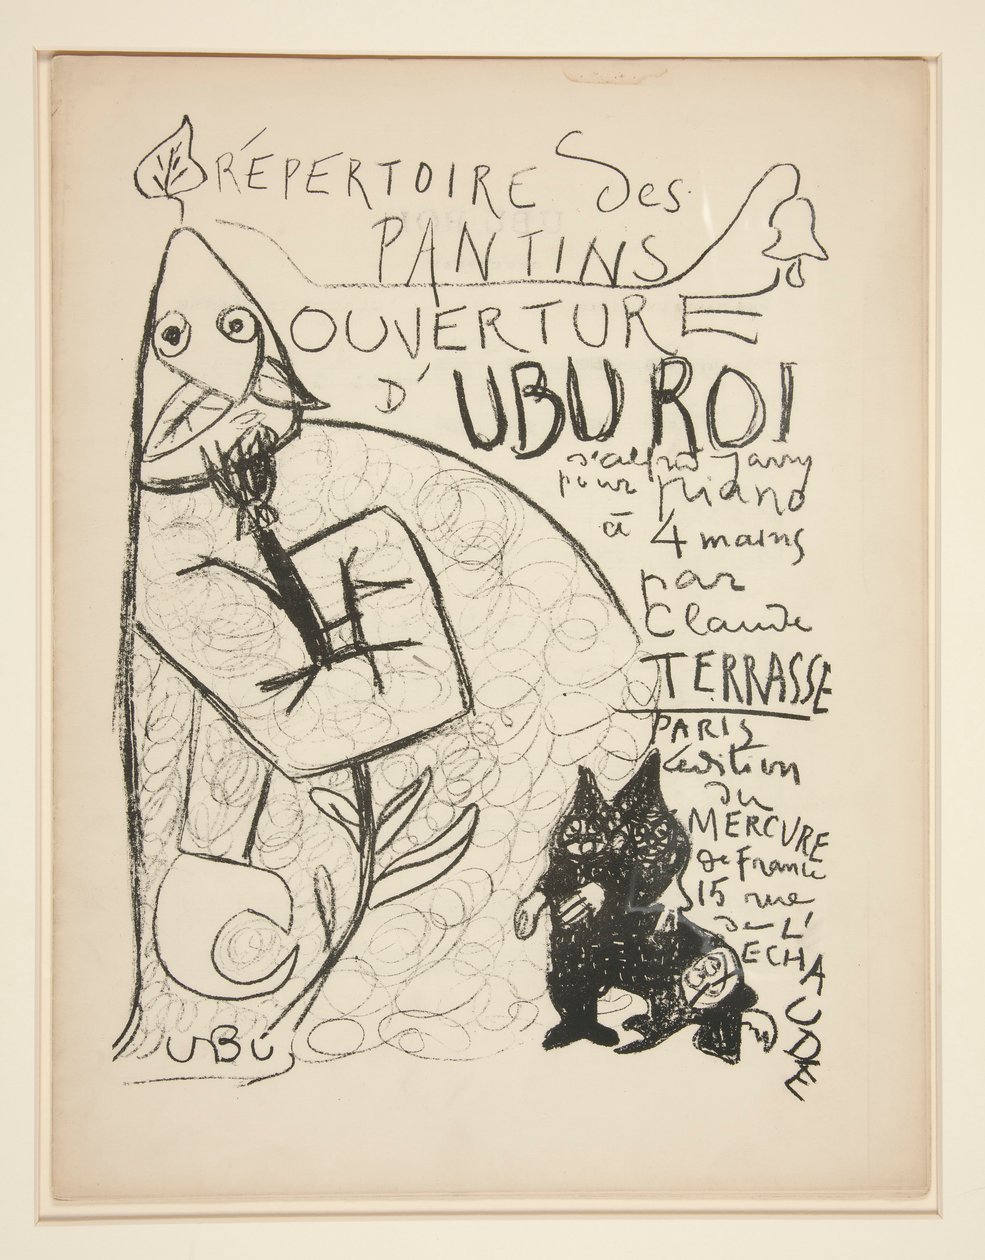 RÉPERTOIRE des
PANTINS
OUVERTURE
D' UBU ROI
d'alfred Jarry
pour piano
à 4 mains
par
Claude
TERRASSE
PARIS
édition
du
MERCURE
de France
15 rue
de L'
ECHAUDÉ
UBU